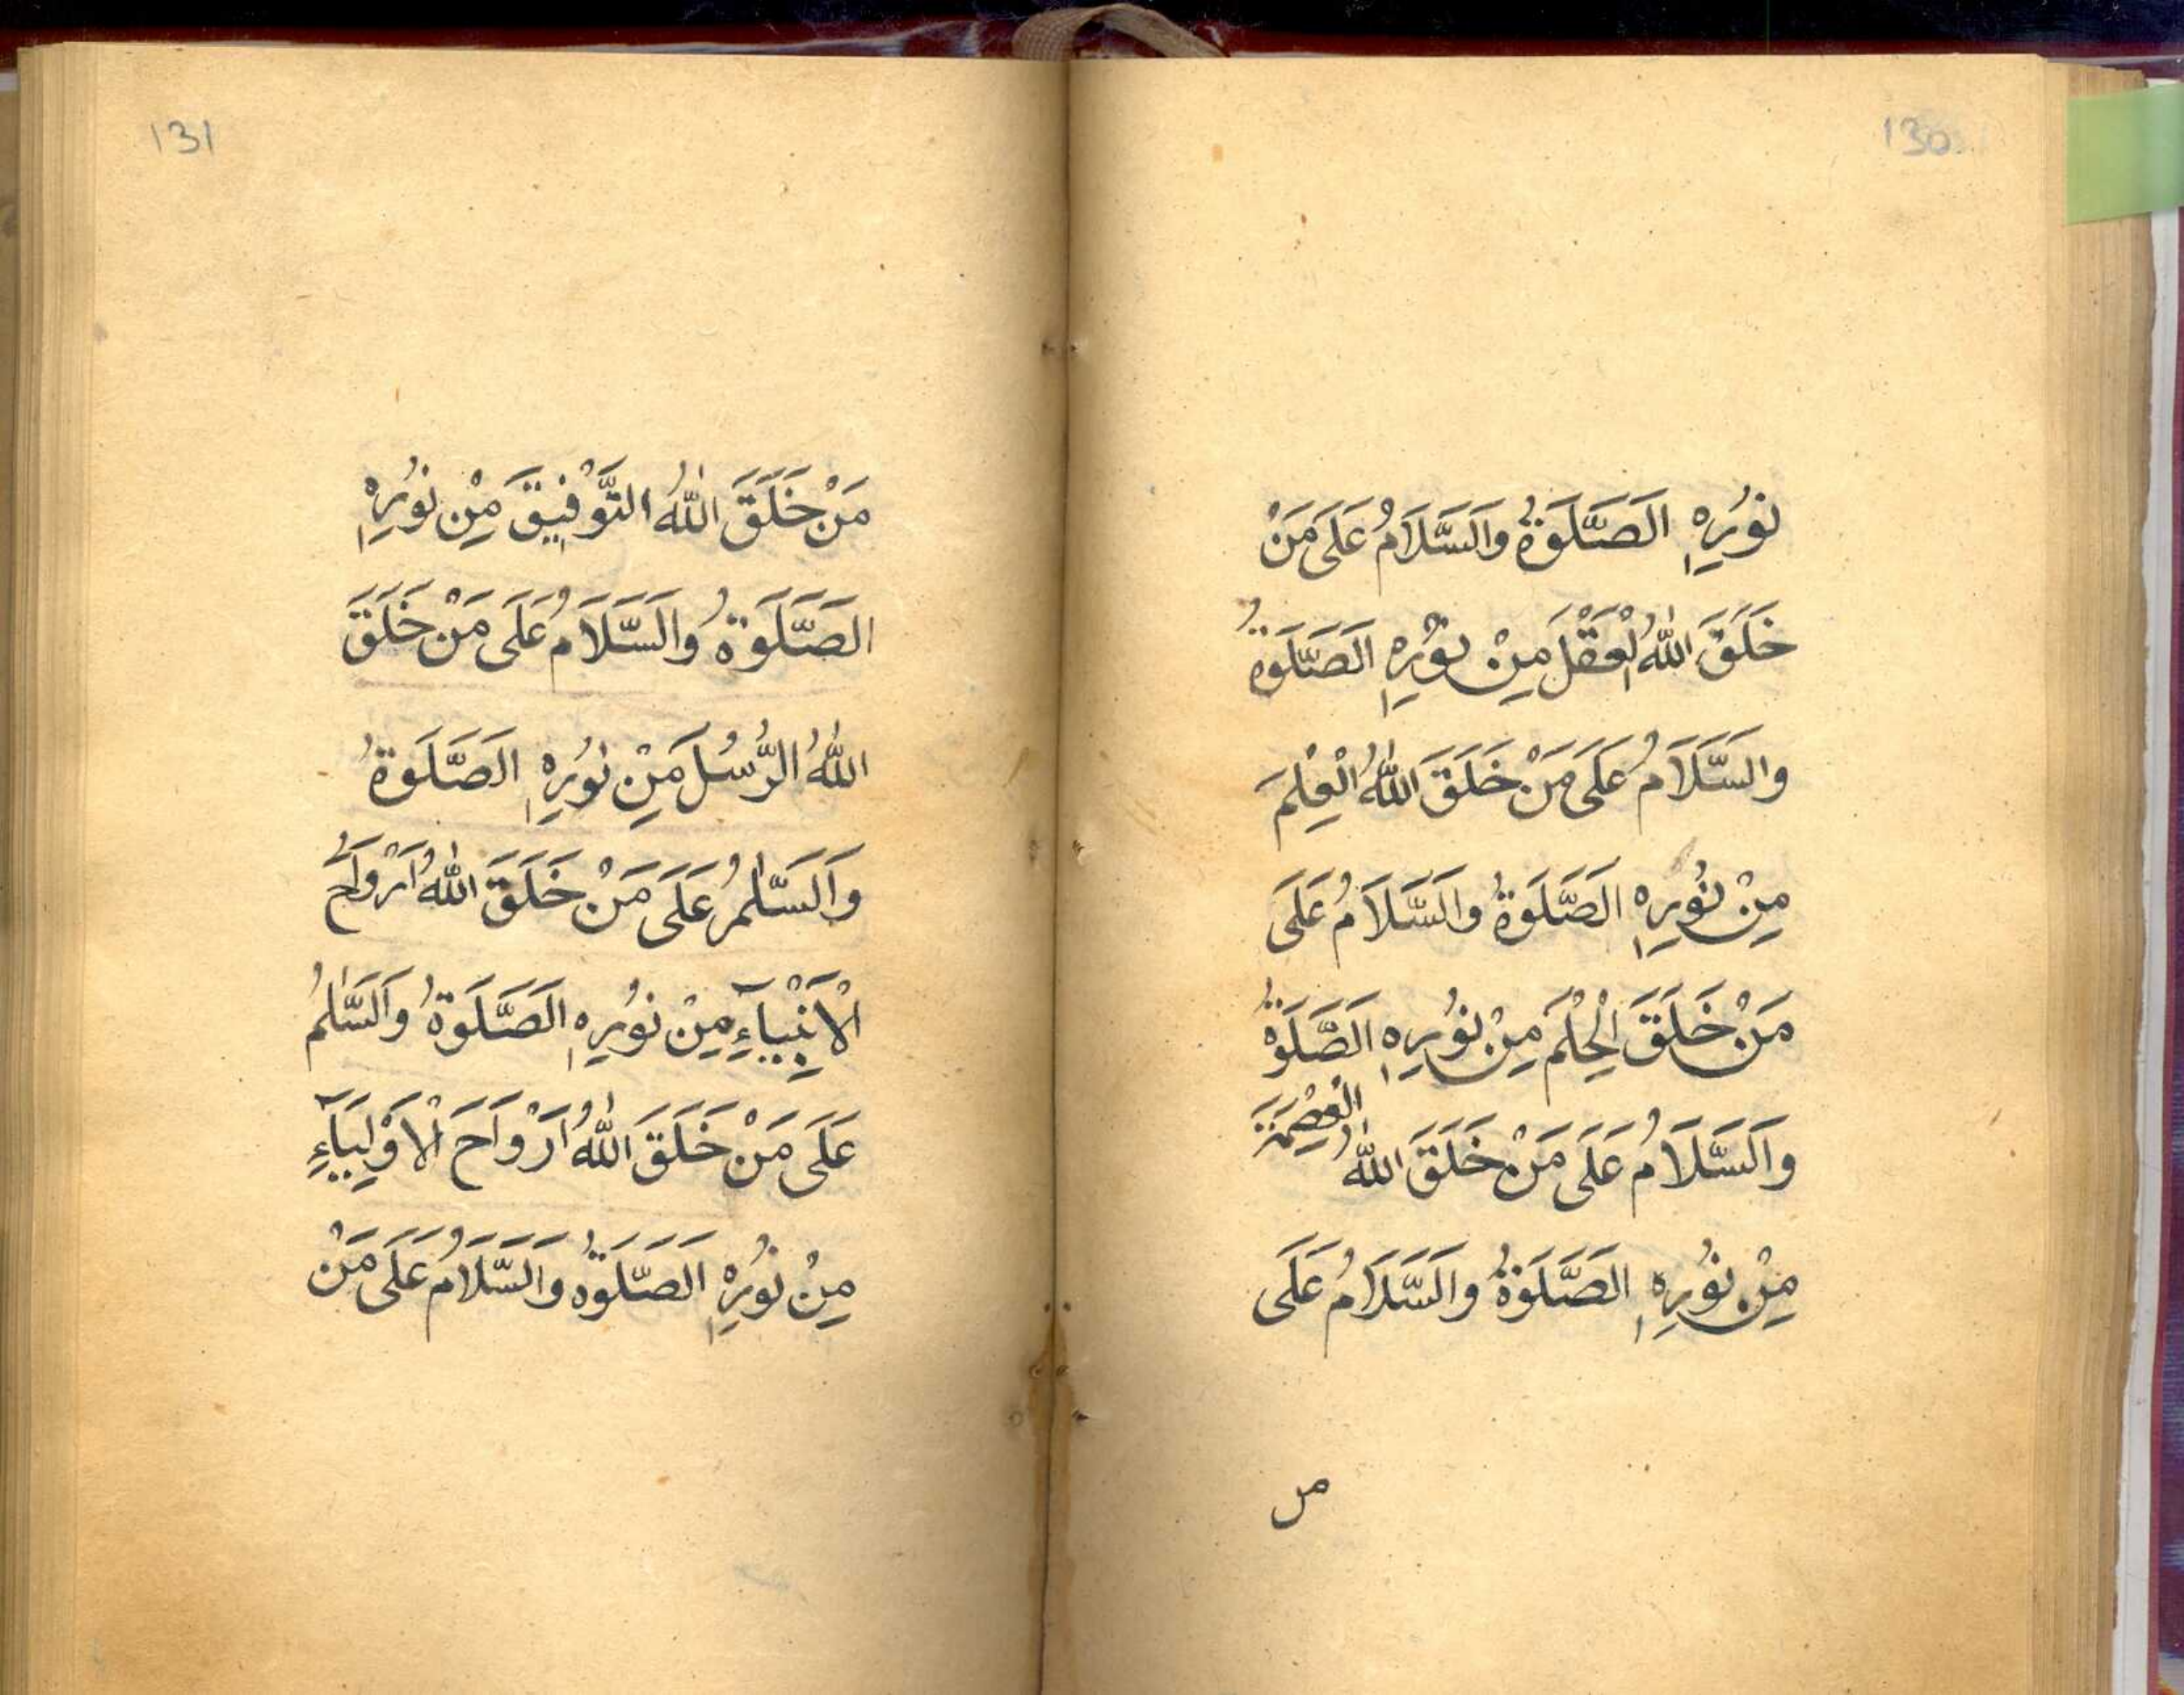 130
نُوْرِهِ الَصَّلَوةُ وَالَسَّلَامُ عَلَى مَنْ
خَلَقَ اللّٰهُ الْعَقْلَ مِنْ نُوْرِهِ الَصَّلَوةُ
وَالسَّلَامُ عَلَى مَنْ خَلَقَ اللّٰهُ الْعِلْمَ
مِنْ نُوْرِهِ الَصَّلَوةُ وَالَسَّلَامُ عَلَى
مَنْ خَلَقَ الْحِلْمَ مِنْ نُوْرِهِ الَصَّلَوةُ
وَالَسَّلَامُ عَلَى مَنْ خَلَقَ اللّٰهُ الْعِصْمَةَ
مِنْ نُوْرِهِ الَصَّلَوةُ وَالَسَّلَامُ عَلَى
من
131
مَنْ خَلَقَ اللّٰهُ التَّوْفِيْقَ مِنْ نُوْرِهِ
الَصَّلَوةُ وَالَسَّلَامُ عَلَى مَنْ خَلَقَ
اللّٰهُ الرُّسُلَ مِنْ نُوْرِهِ الَصَّلَوةُ
وَالَسَّلٰمُ عَلَى مَنْ خَلَقَ اللّٰهُ اَرْوَاحَ
الْاَنْبِيَآءِ مِنْ نُوْرِهِ الَصَّلَوةُ وَالَسَّلٰمُ
عَلَى مَنْ خَلَقَ اللّٰهُ اَرْوَاحَ الْاَوْلِيَآءِ
مِنْ نُوْرِهِ الَصَّلَوةُ وَالَسَّلَامُ عَلَى مَنْ